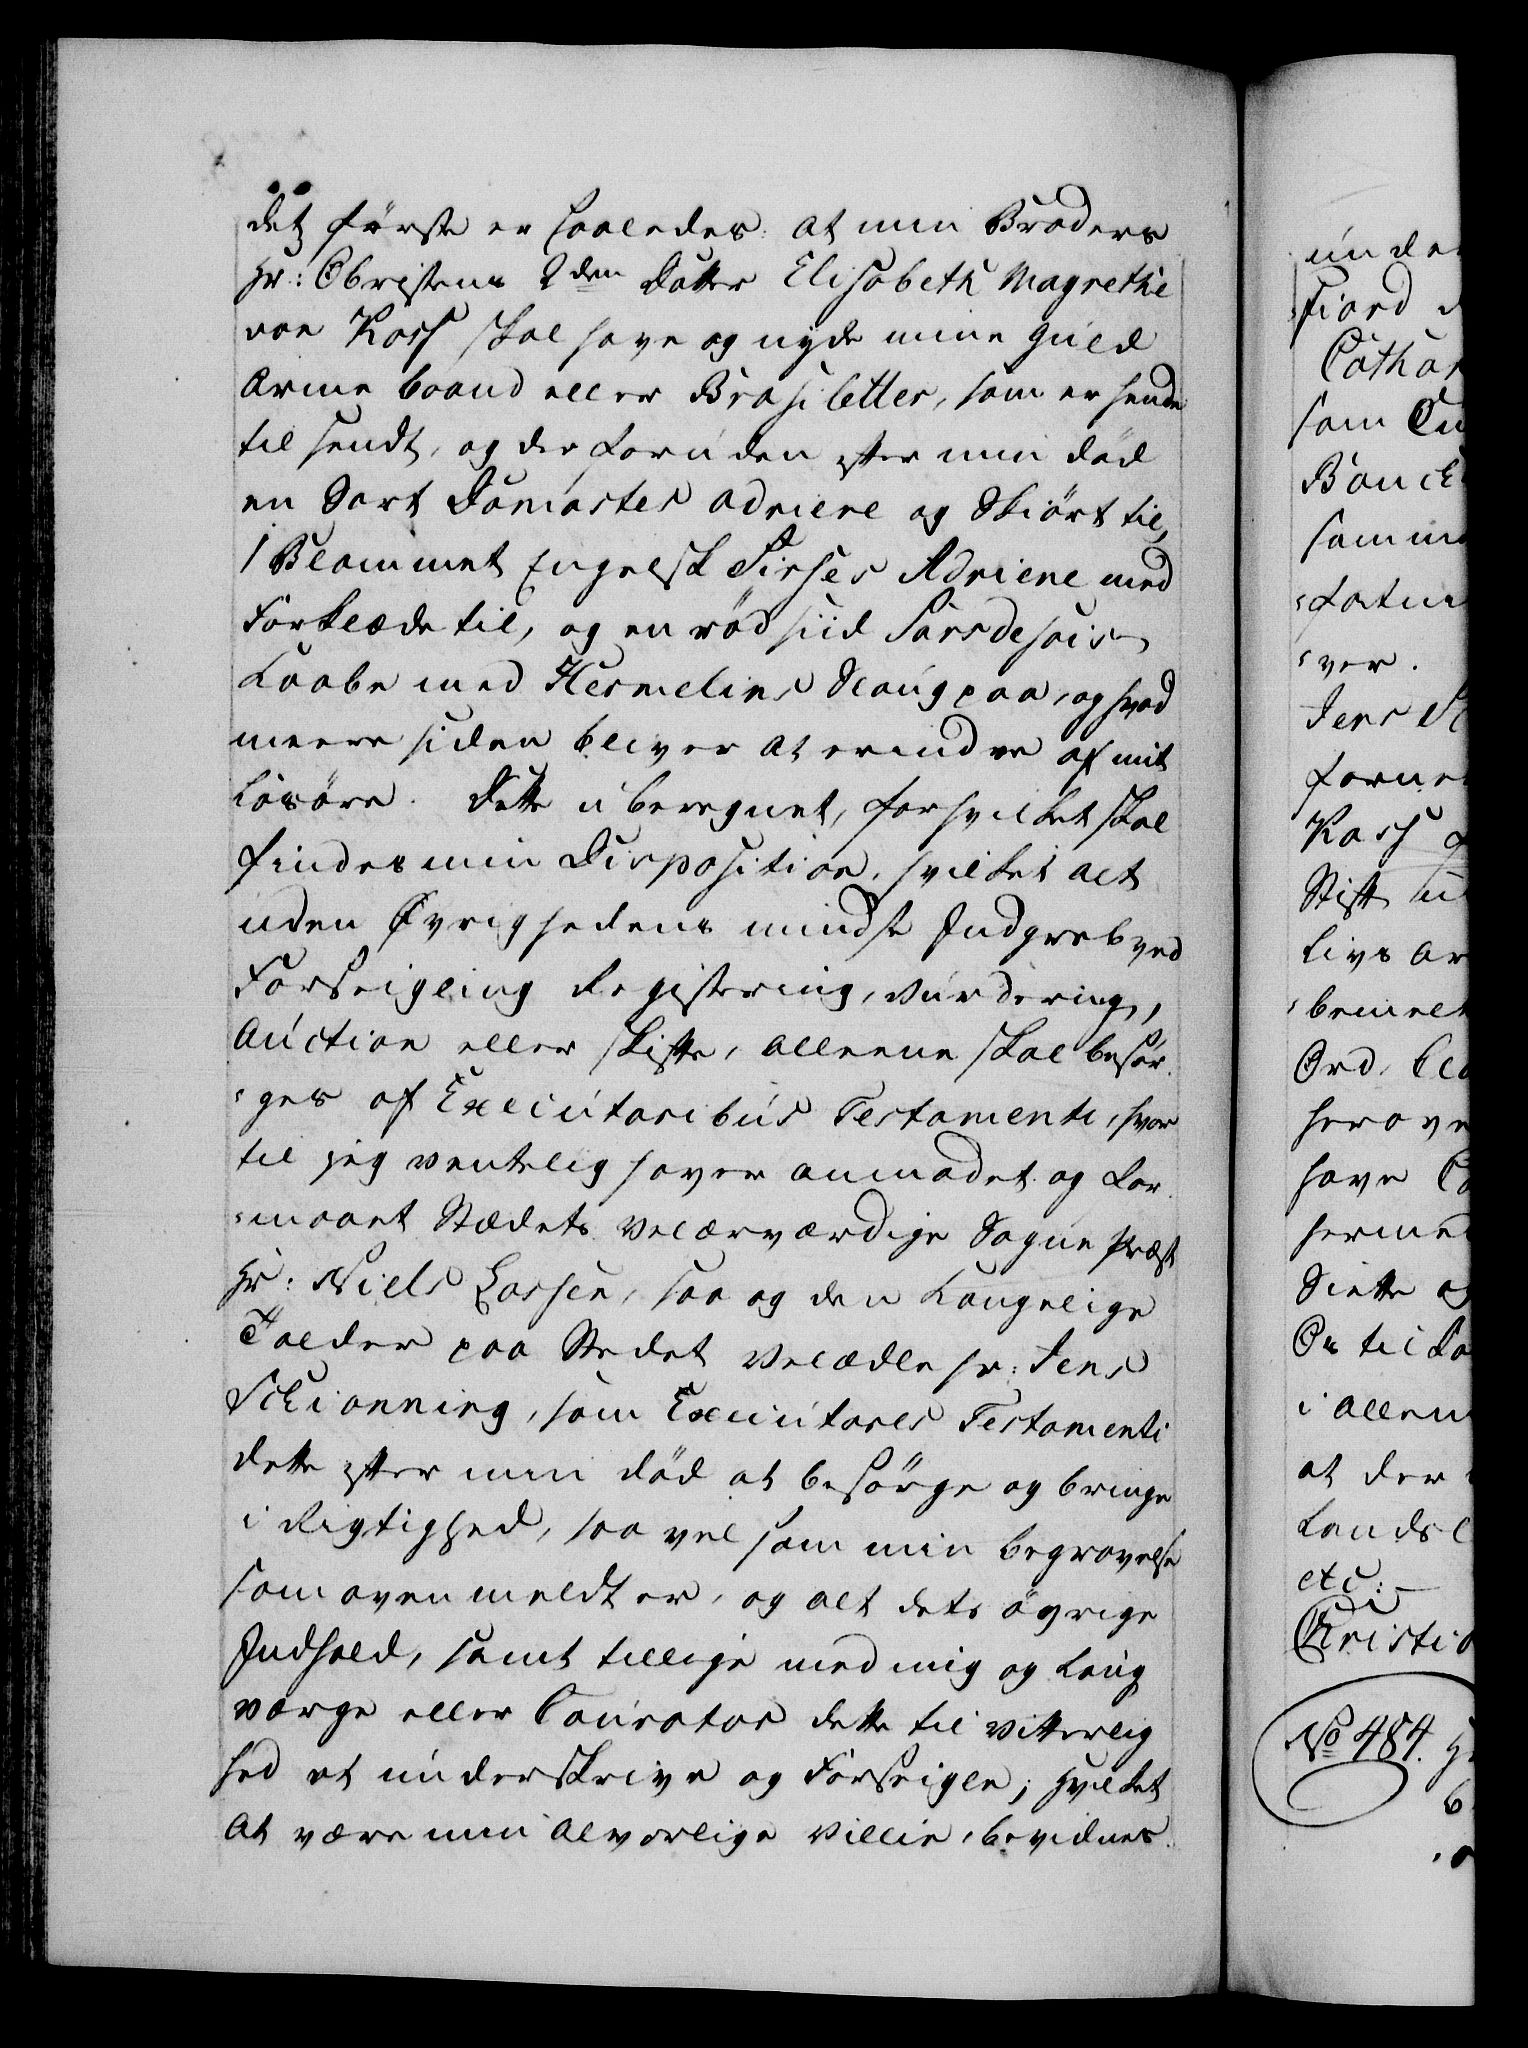 det første er saaledes: at min Broders
Hr: Obristens 2den Datter Elisabeth Magrethe
von Koss skal have og nyde mine Guld
Arme baand eller Brasiletter, som er hende
til sendt, og der foruden efter min död
en Sort Damastes Adriene og Skiört til,
1 Blommet Engelsk Sirses Adriene med
Forklæde til, og en röd sild Sarsdesois
Kaabe med Hermelins Slaug paa, og hvad
meere siden bliver at erindre af mit
Lösöre. Dette uberegnet, for hvilket skal
findes min Disposition, hvilket alt
uden Øvrighedens mindste Indgreb ved
Forseigling Registering, Vurdering,
Auction eller Skifte, alleene skal besör-
ges af Executoribus Testamenti, hvor
til jeg ventelig haver anmodet og for-
-maaet Stædets velærværdige Sogne Præst
Hr: Niels Lassen, saa og den Kongelige
Tolder paa Stedet Velædle Hr: Jens
Schionning, som Executores Testamenti
dette efter min död at besörge og bringe
i Rigtighed, saa vel som min begravelse
som oven meldt er, og alt dets övrige
Indhold, samt tillige med mig og Laug
værge eller Courator dette til vitterlig
hed at underskrive og Forseigle; hvilket
at være min alvorlige Villie, bevidnes
unde
fiord
Cathar
som
Banck
samme
ver.
Jens
forne
Kass
Stift
livs
bemelt
Ord,
herove
have
herme
Siette og
On til
i allen
at der
Lands
etc:
Christi
No 484.